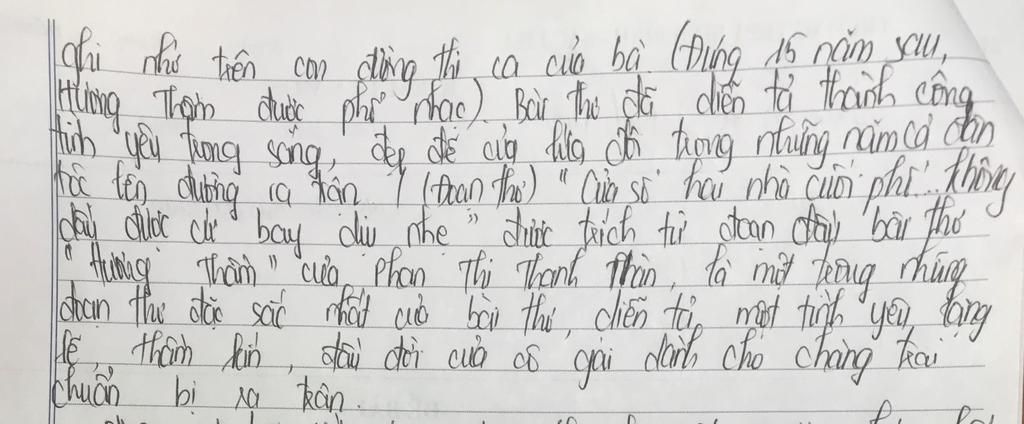 ghi nhớ trên con đường thi ca của bà (Đúng 15 năm sau,
Hương Thầm được phổ nhạc). Bài thơ đã diễn tả thành công
tình yêu trong sáng, đẹp đẽ của lứa đôi trong những năm cả dân
tộc lên đường ra trận / (Đoạn thơ) "Cửa sổ hai nhà cuối phố.. không
dấu được cứ bay dịu nhẹ" được trích từ đoạn đầu bài thơ
"Hương Thầm" của Phan Thị Thanh Nhàn, là một trong những
đoạn thơ đặc sắc nhất của bài thơ, diễn tả một tình yêu lặng
lẽ, thầm kín, đầu đời của cô gái dành cho chàng trai
chuẩn bị ra trận